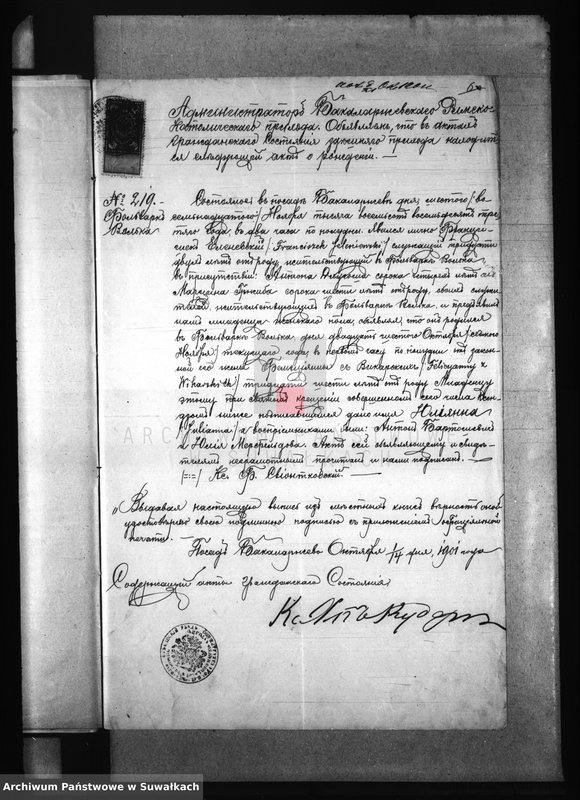 Администраторъ Бакаларжевскаго Римско-
Католическаго прихода. Объявляетъ, что въ актахъ
Гражданскаго Состоянія здешняго прихода находит-
ся слѣдующій актъ о рожденіи. —
№ 219.
Фольваркъ
Волька
Состоялось въ посадѣ Бакаларжевѣ дня шестого /во-
семьнадцатаго/ Ноября тысяча восемьсотъ восемьдесятъ тре-
тьяго года, въ два часа по полудни. Явился лично Франци-
шекъ /Franciszek служащій тридцати
двухъ лѣтъ отъ роду жительствующій въ Фольваркѣ Волька
въ присутствіи: Антона сорока четырехъ лѣтъ и
Марцина сорока шести лѣтъ отъ роду, обоихъ служи-
телей, жительствующихъ въ Фольваркѣ Волька, и предъявилъ
намъ младенца женскаго пола, объявляя, что онъ родился
въ Фольваркѣ Волька дня двадцать шестого Октября /седьмого
Ноября/ текущаго года, въ часу по полудни отъ закон-
ной его жены Фелиціянны съ /Felicyanny z
тридцати шести лѣтъ отъ роду. Младенцу
этому при святомъ крещеніи совершенномъ сего числа Ксен-
дзомъ ниже подписавшимся дано имя Юліанна
/Julianna/ а воспріемниками были: Антонъ Бартошевичъ
и Юлія Актъ сей объявляющему и свидѣ-
телямъ неграмотнымъ прочитанъ и нами подписанъ. —
/-=-/ Кс. Ф. Свіонтковскій.
Выдавая настоящую выпись изъ мѣстныхъ книгъ вѣрность оной
удостовѣряю своею подлинною подписью съ приложеніемъ оффиціальной
печати.
Посадъ Бакаларжево Октября 1/14 дня, 1901 года
Содержащій акты Гражданскаго Состоянія
Кс.
ARC
Archiwum Państwowe w Suwałkach